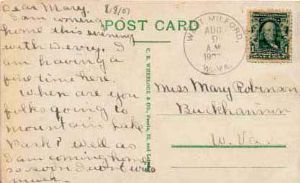 Dear Mary,
8/8/07
I am coming
home this evening
with Derry. I
am having a
fine time here.
When are you
folks going to
mountain Lake
Park? Well as
I am coming home
so soon I won't write
much.
POST CARD
WEST MILFORD,
AUG
8
A.M.
190
W.VA.
Miss Mary Robinson
Buckhannon
W. Va.